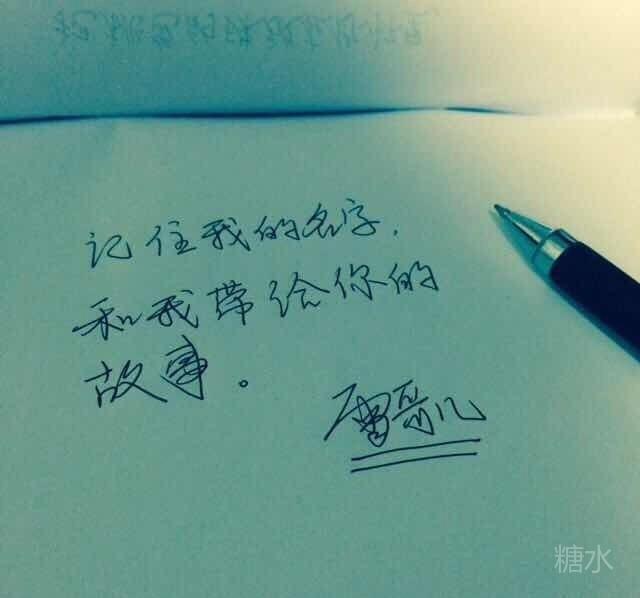 记住我的名字,
和我带给你的
故事。
糖水